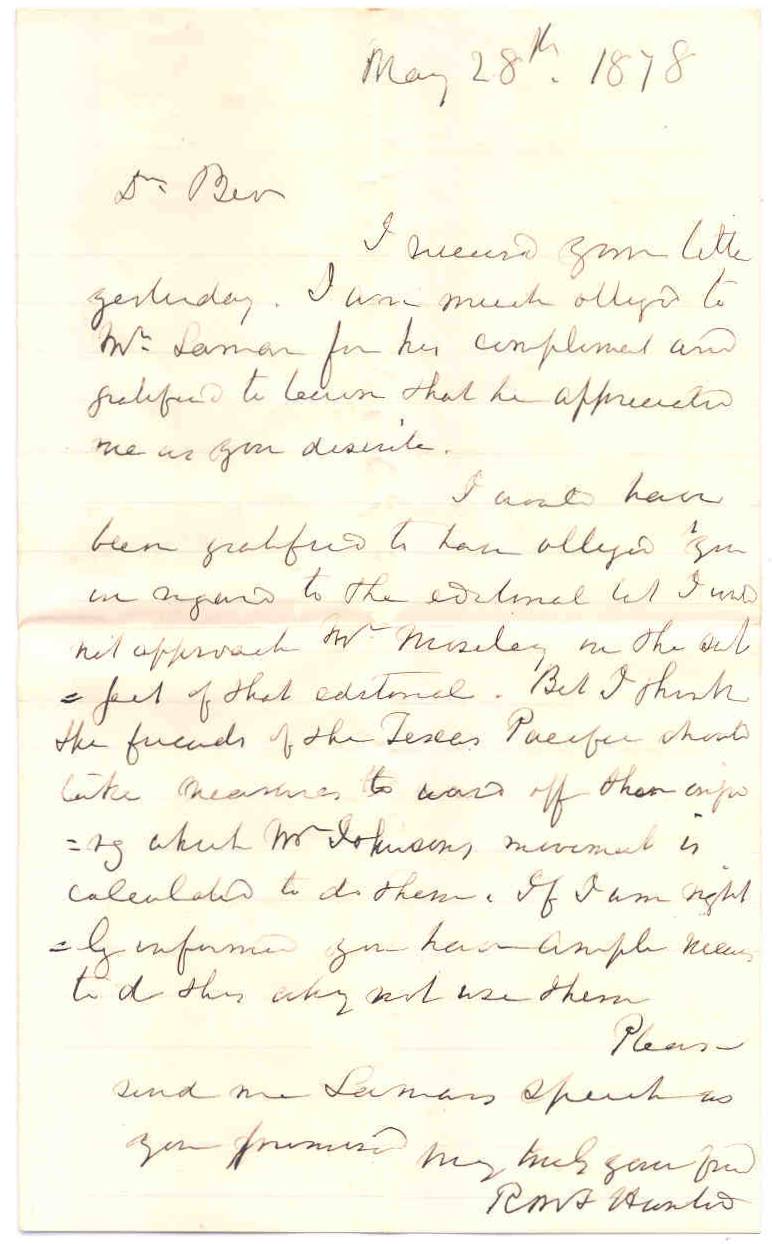 May 28th. 1878
Dr Bev
I received your letter
yesterday. I am much obliged to
Mr. Lamar for his compliment and
gratified to learn that he appreciated
me as you describe.
I would have
been gratified to have obliged you
in regard to the editorial but I could
not approach Mr Moseley on the sub
=ject of that editorial. But I think
the friends of the Texas Pacific should
take measures to ward off the inju
=ry which Mr Johnsons movement is
calculated to do them. If I am right
=ly informed you have ample means
to do this why not use them
Please
send me Lamars speech as
you promised Very truly your friend
R M T Hunter